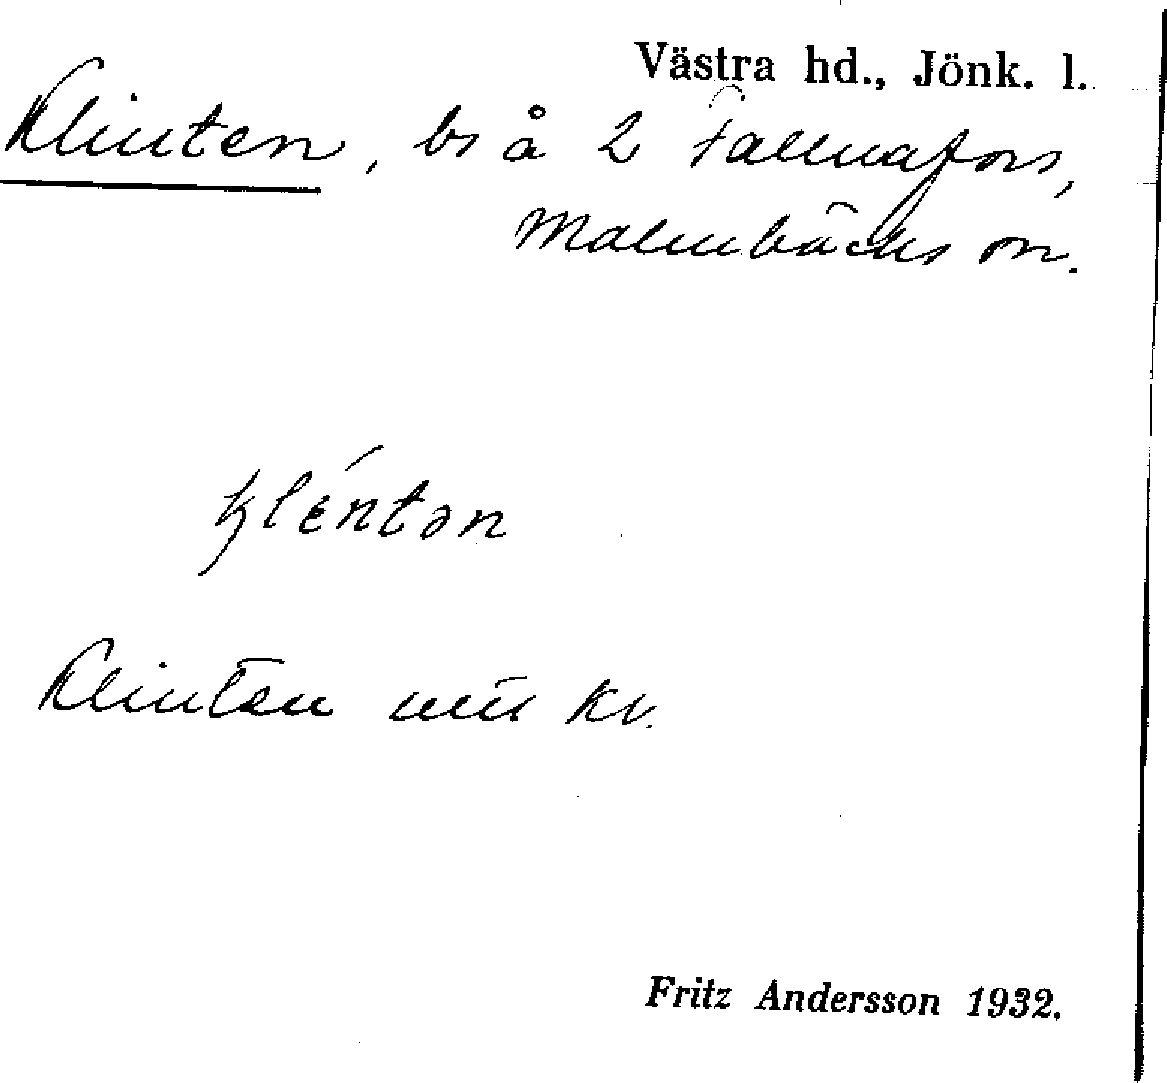 Västra hd., Jönk. l.
Klinten, bs å 2 Fallnafors,
Malmbäcks sn.
klɛ́ntən
Klintan
Kv.
Fritz Andersson 1932.